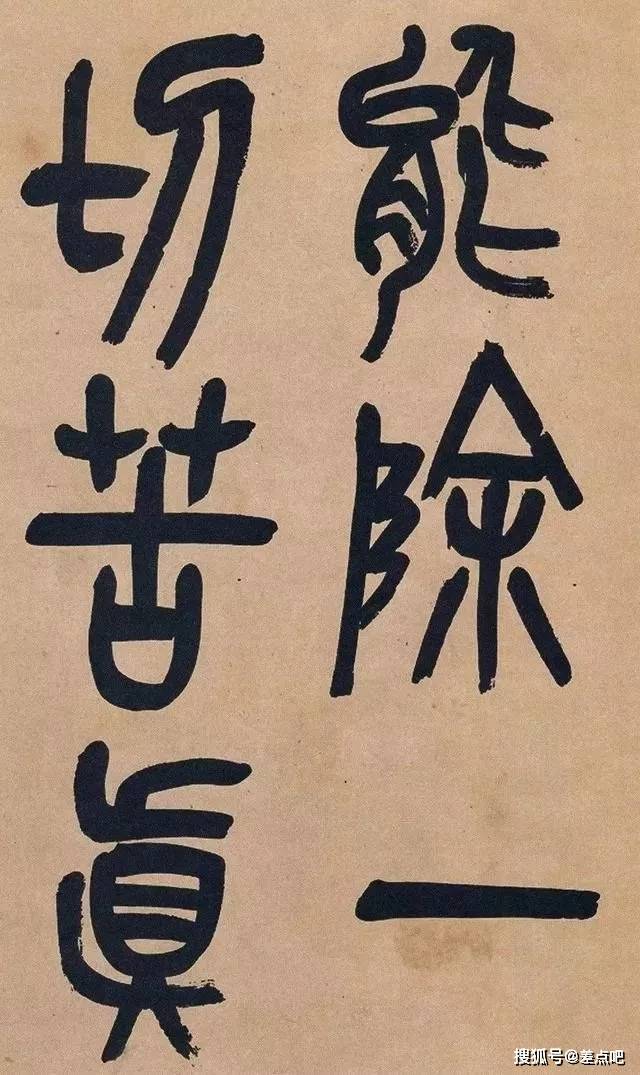 能除一
切苦真
搜狐号@差点吧